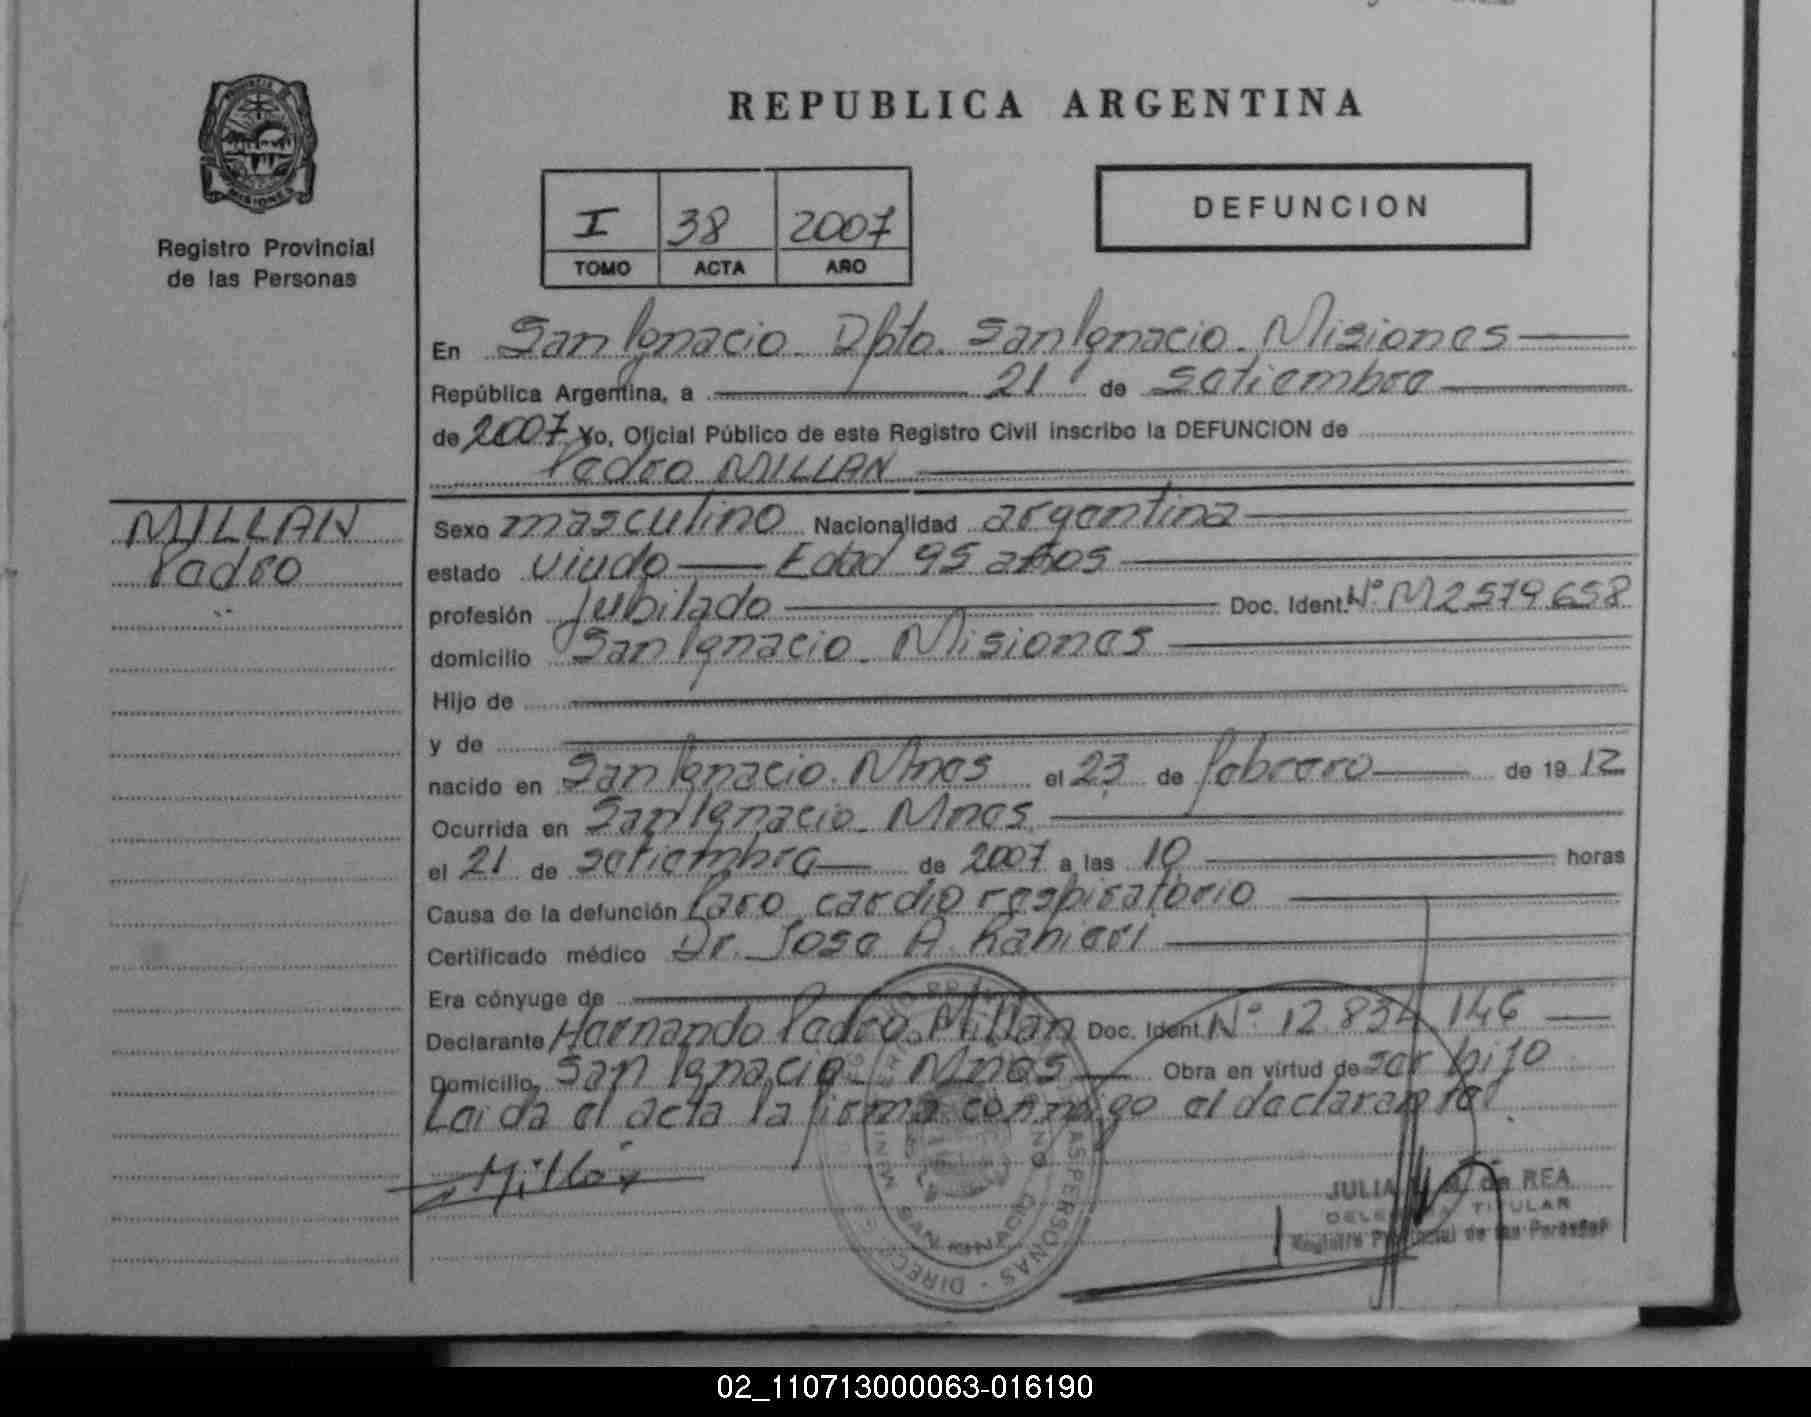 PROVINCIA DE
MISIONES
Registro Provincial
de las Personas
REPUBLICA ARGENTINA
I 38 2007
TOMO ACTA AÑO
DEFUNCION
En San Ignacio. Dpto. San Ignacio. Misiones
República Argentina, a 21 de setiembre
de 2007 Yo, Oficial Público de este Registro Civil inscribo la DEFUNCION de
Pedro MILLAN
MILLAN
Pedro
Sexo masculino Nacionalidad argentina
estado viudo Edad 95 años
profesión Jubilado Doc. Ident. Nº M2579658
domicilio San Ignacio. Misiones
Hijo de
y de
nacido en San Ignacio. Mnes el 23 de febrero de 19 12
Ocurrida en San Ignacio. Mnes
el 21 de setiembre de 2007 a las 10 horas
Causa de la defunción Paro cardio respiratorio
Certificado médico Dr. Jose A. Ranieri
Era cónyuge de
Declarante Hernando Pedro Millan Doc. Ident. Nº 12.834.146
Domicilio San Ignacio. Mnes Obra en virtud de ser hijo
Leida el acta la firma conmigo el declarante
Millán
JULIA de REA
DELEGADA TITULAR
Registro Provincial de las Personas
SAN IGNACIO
PERSONAS - DIREC
02_110713000063-016190